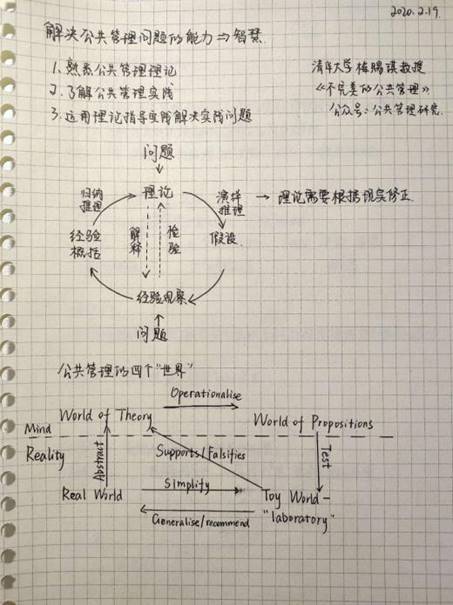 2020.2.19.
解决公共管理问题的能力⇒智慧
1.熟悉公共管理理论
2.了解公共管理实践
3.运用理论指导实践解决实践问题
清华大学梅赐琪教授
《不完美的公共管理》
公众号:公共管理研究
问题
↓
归纳推理
理论
演绎推理
→ 理论需要根据现实修正
经验概括
解释
检验
假设
经验观察
↑
问题
公共管理的四个"世界"
Operationalise
World of Theory
World of Propositions
Mind
Reality
Abstract
Supports/Falsifies
Test
Real World
Simplify
Toy World-
"laboratory"
Generalise/recommend